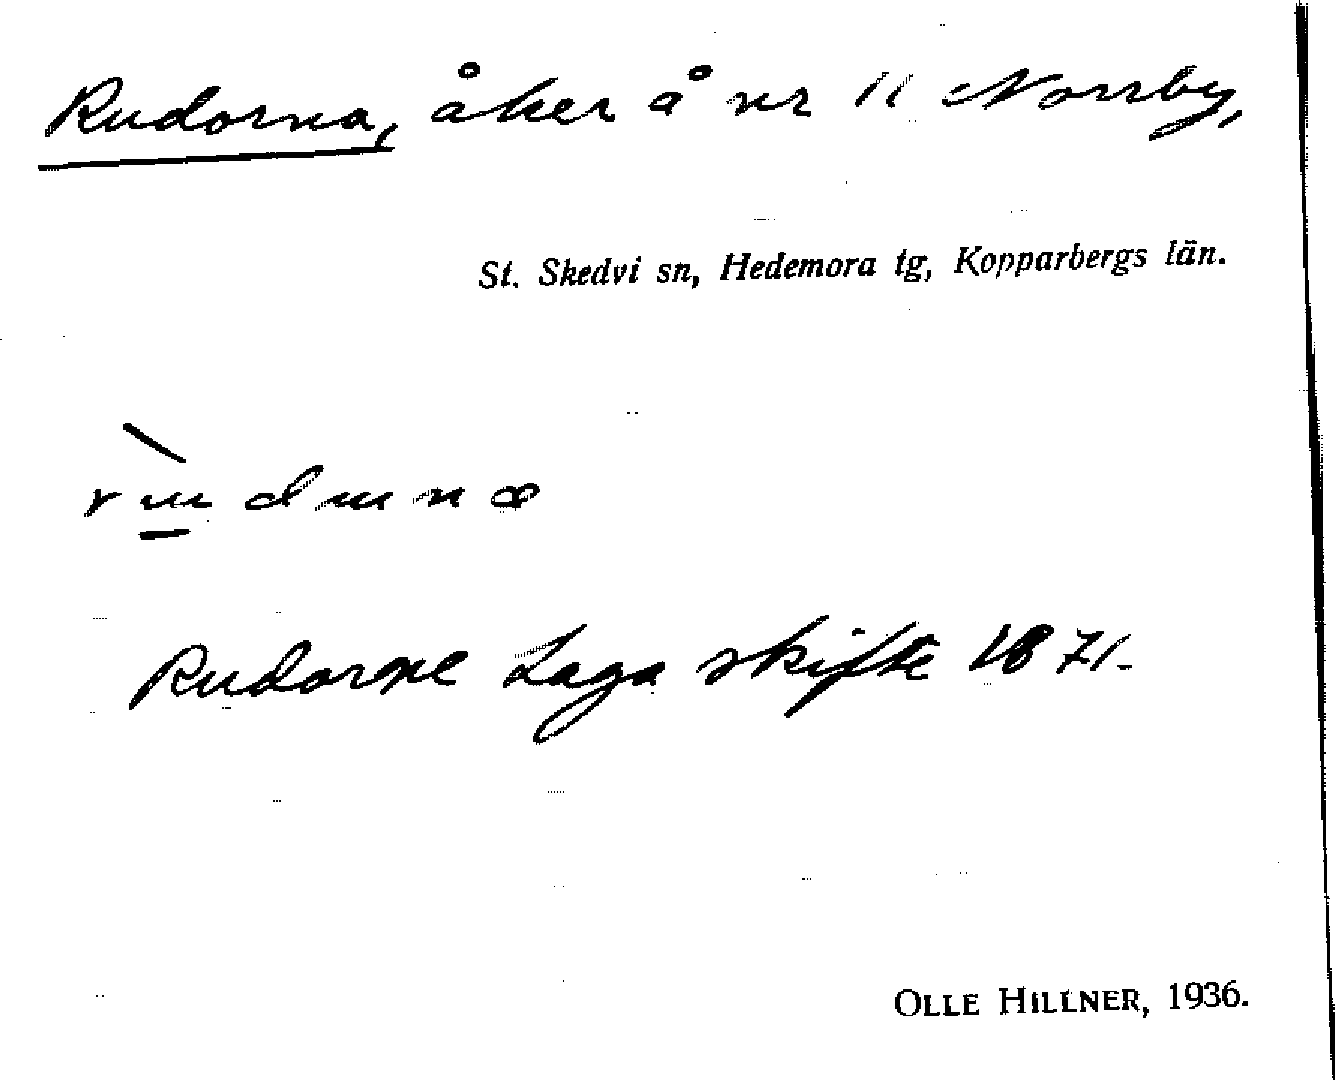 Rudorna, åker å nr 11 Norrby,
St. Skedvi sn, Hedemora tg, Kopparbergs län.
Rudorne Laga skifte 1871.
OLLE HILLNER, 1936.